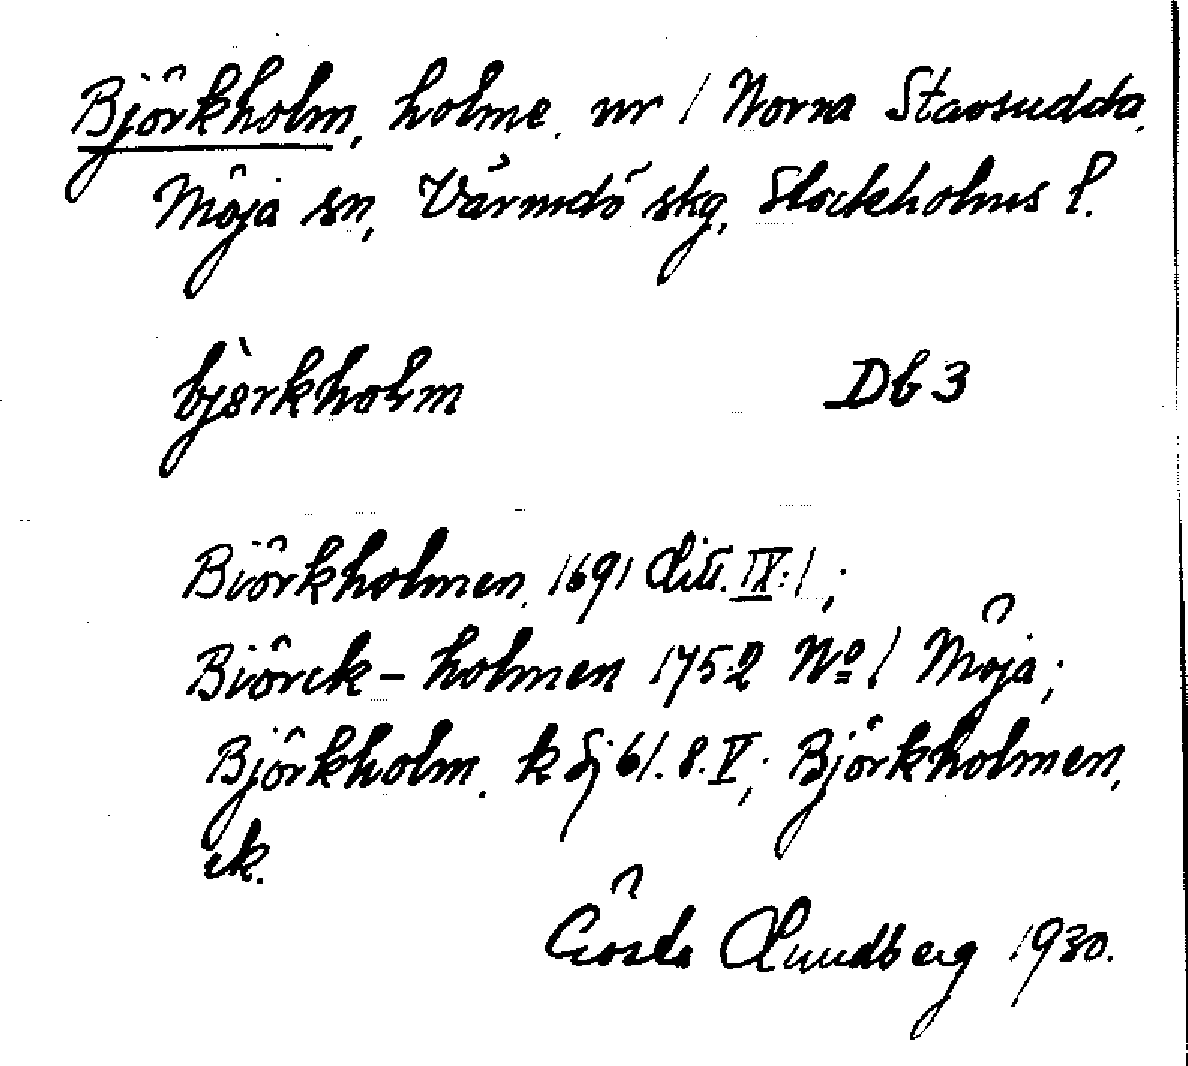 Björkholm, holme, nr 1 Norra Stavsudda,
Möja sn, Värmdö skg, Stockholms l.
bjørkholm Db 3
Biörkholmen, 1691 Litt. IX:1;
Biörck-holmen 1752 No 1 Möja;
Björkholm, k Sj 61. 8. V; Björkholmen,
ek.
Gösta Lundberg 1930.